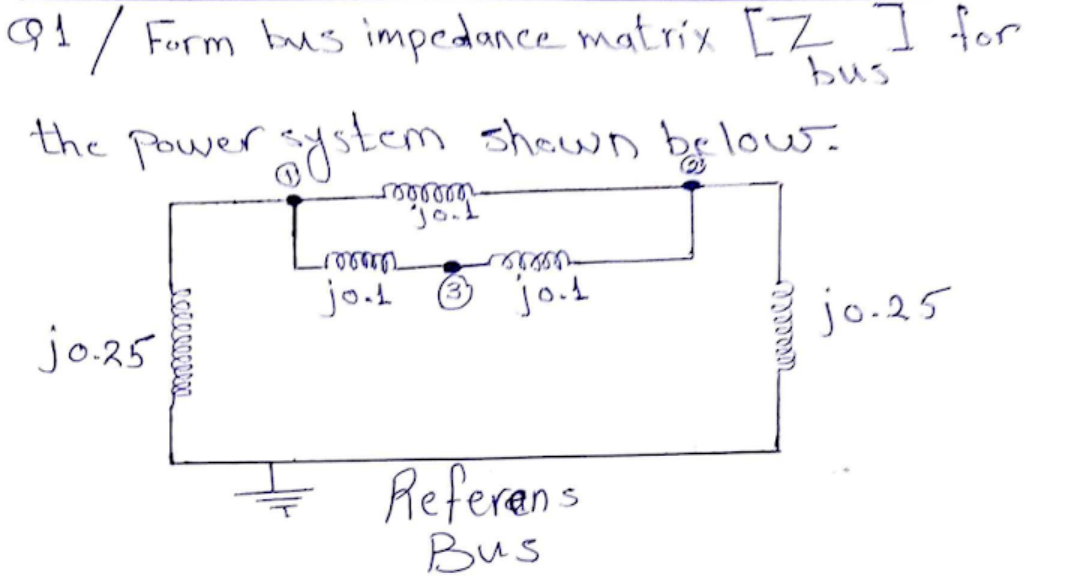 Q1/ Form bus impedance matrix [Z bus] for
the power system shown below.
① ②
j0.1
j0.1 ③ j0.1
j0.25 j0.25
Referens
Bus